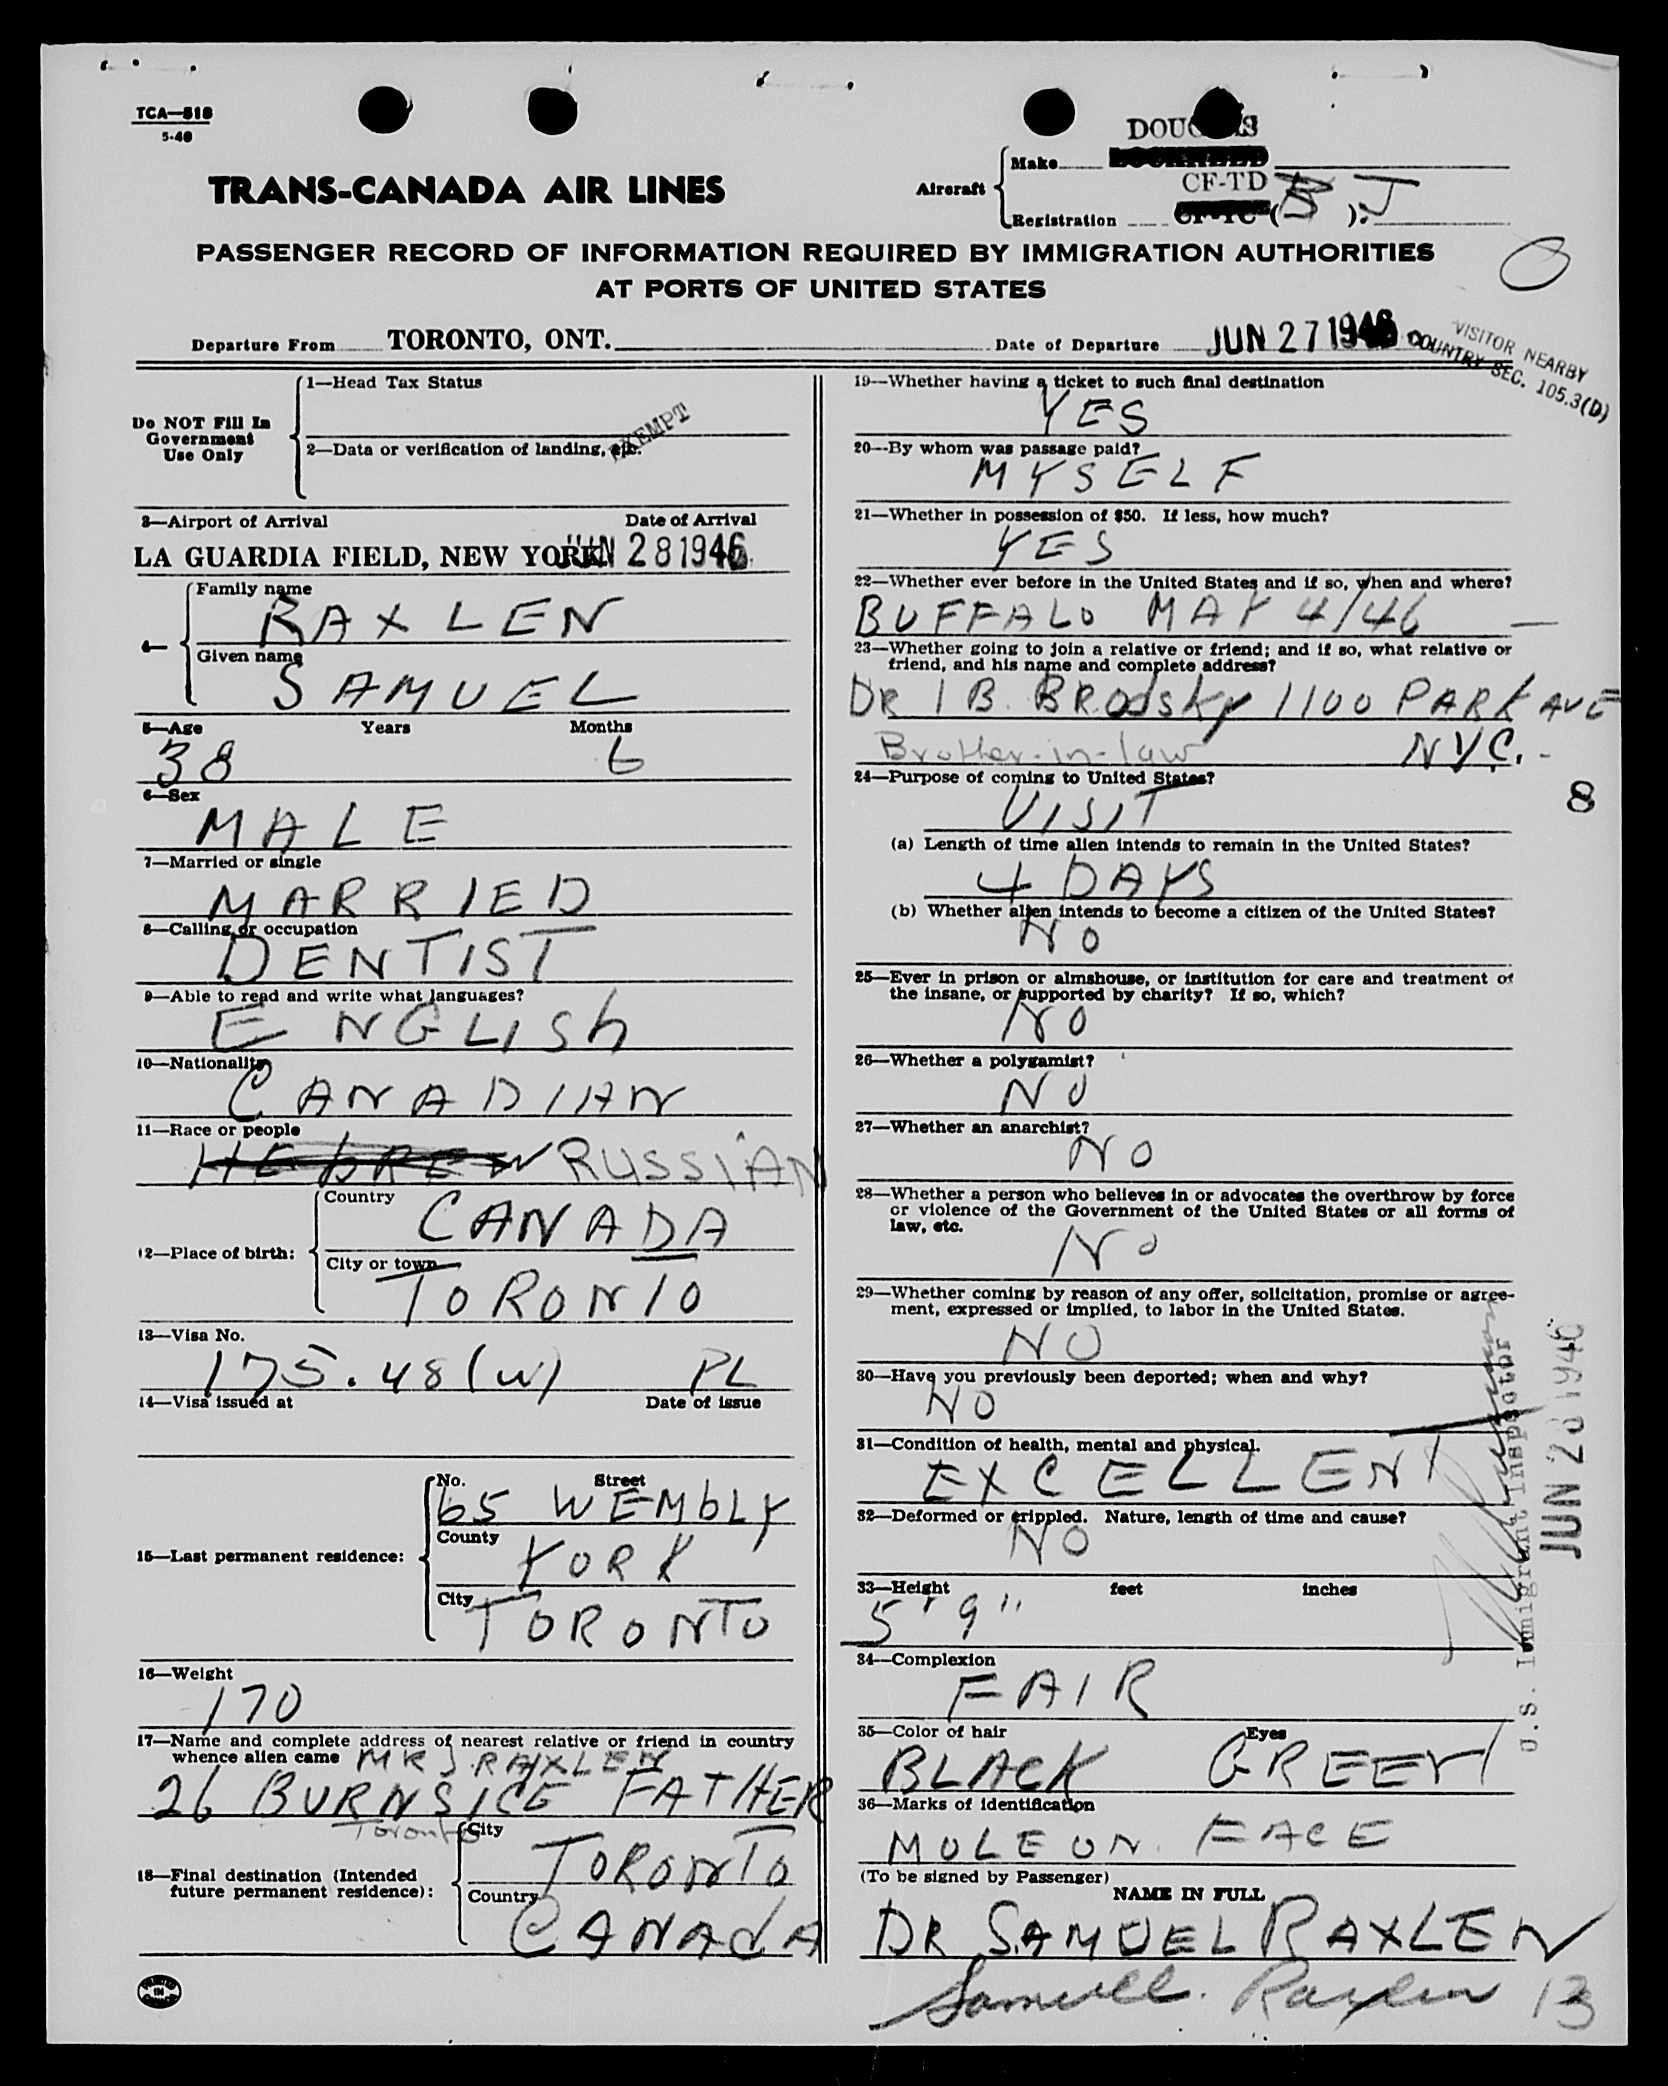 TCA—518
5-46
DOUGLAS
Make
TRANS-CANADA AIR LINES
Aircraft
CF-TD B J
Registration
PASSENGER RECORD OF INFORMATION REQUIRED BY IMMIGRATION AUTHORITIES
AT PORTS OF UNITED STATES
Departure From TORONTO, ONT. Date of Departure JUN 27 1946
VISITOR NEARBY
COUNTRY SEC. 105.3(D)
Do NOT Fill In
Government
Use Only
1—Head Tax Status
2—Data or verification of landing, etc.
EXEMPT
3—Airport of Arrival Date of Arrival
LA GUARDIA FIELD, NEW YORK JUN 28 1946
4—
Family name
RAXLEN
Given name
SAMUEL
5—Age Years Months
38 6
6—Sex
MALE
7—Married or single
MARRIED
8—Calling or occupation
DENTIST
9—Able to read and write what languages?
ENGLISh
10—Nationality
CANADIAN
11—Race or people
HEbREW RUSSIAN
12—Place of birth:
Country
CANADA
City or town
TORONTO
13—Visa No.
175.48(w) PL
14—Visa issued at Date of issue
15—Last permanent residence:
No. Street
65 WEMbLY
County
YORK
City
TORONTO
16—Weight
170
17—Name and complete address of nearest relative or friend in country
whence alien came MR J. RAXLEN
26 BURNSIDE FATHER
Toronto
18—Final destination (Intended
future permanent residence):
City
TORONTO
Country
CANAdA
19—Whether having a ticket to such final destination
YES
20—By whom was passage paid?
MYSELF
21—Whether in possession of $50. If less, how much?
YES
22—Whether ever before in the United States and if so, when and where?
BUFFALO MAY 4/46 —
23—Whether going to join a relative or friend; and if so, what relative or
friend, and his name and complete address?
DR I B. BRODSKY 1100 PARK AVE
Brother-in-law NYC.
24—Purpose of coming to United States?
VISIT
8
(a) Length of time alien intends to remain in the United States?
4 DAYS
(b) Whether alien intends to become a citizen of the United States?
NO
25—Ever in prison or almshouse, or institution for care and treatment of
the insane, or supported by charity? If so, which?
NO
26—Whether a polygamist?
NO
27—Whether an anarchist?
NO
28—Whether a person who believes in or advocates the overthrow by force
or violence of the Government of the United States or all forms of
law, etc.
NO
29—Whether coming by reason of any offer, solicitation, promise or agree-
ment, expressed or implied, to labor in the United States.
NO
30—Have you previously been deported; when and why?
NO
31—Condition of health, mental and physical.
EXCELLENT
32—Deformed or crippled. Nature, length of time and cause?
NO
33—Height feet inches
5' 9"
34—Complexion
FAIR
35—Color of hair Eyes
BLACK GREEN
36—Marks of identification
MOLE ON FACE
(To be signed by Passenger)
NAME IN FULL
DR SAMUEL RAXLEN
Samuel Raxlen 13
U.S. Immigrant Inspector
JUN 28 1946